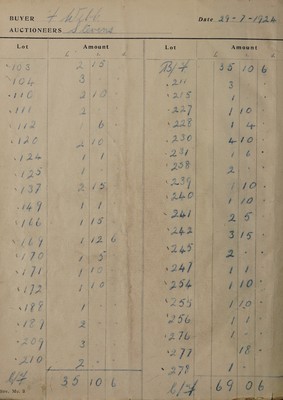 BUYER F. Webb Date 29-7-1926
AUCTIONEERS Stevens
Lot Amount
£
103 2 15 -
104 3 - -
110 2 10 -
111 2 - -
112 6 -
120 2 10 -
124 1 1 -
125 1 - -
137 2 15 -
149 1 1 -
166 1 15 -
169 1 12 6
170 - 5 -
171 1 10 -
172 1 10 -
188 1 - -
189 2 - -
209 3 - -
210 2 - -
C/F 35 10 6
Lot Amount
B/F 35 10 6
211 3 -
218 1 -
227 1 10 -
228 1 4 -
230 4 10 -
231 1 6 -
238 2 - -
239 1 10 -
240 1 10 -
241 2 5 -
242 3 15 -
245 2 - -
247 1 1 -
254 1 10 -
255 1 10 -
256 1 1 -
276 1 - -
277 18 -
278 1 - -
C/F 69 0 6